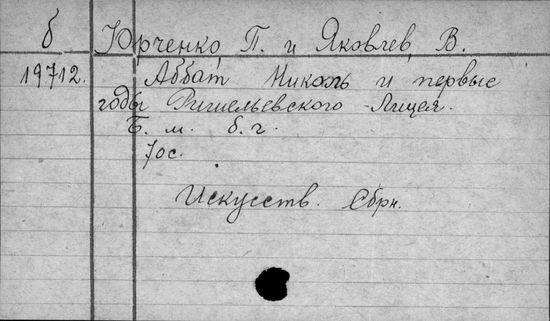 б Юрченко П. и Яковлев, В.
19712. Аббат Николь и первые
годы Ришельевского Лицея.
Б. м. б. г.
70с.
Искусств. Сбрн.